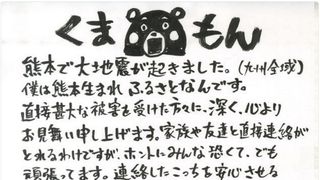 くまもん
熊本で大地震が起きました。(九州全域)
僕は熊本生まれ ふるさとなんです。
直接甚大な被害を受けた方々に、深く、心より
お見舞い申し上げます。家族や友達と直接連絡が
とれるわけですが、ホントにみんな恐くて、でも
頑張ってます。連絡したこっちを安心させる